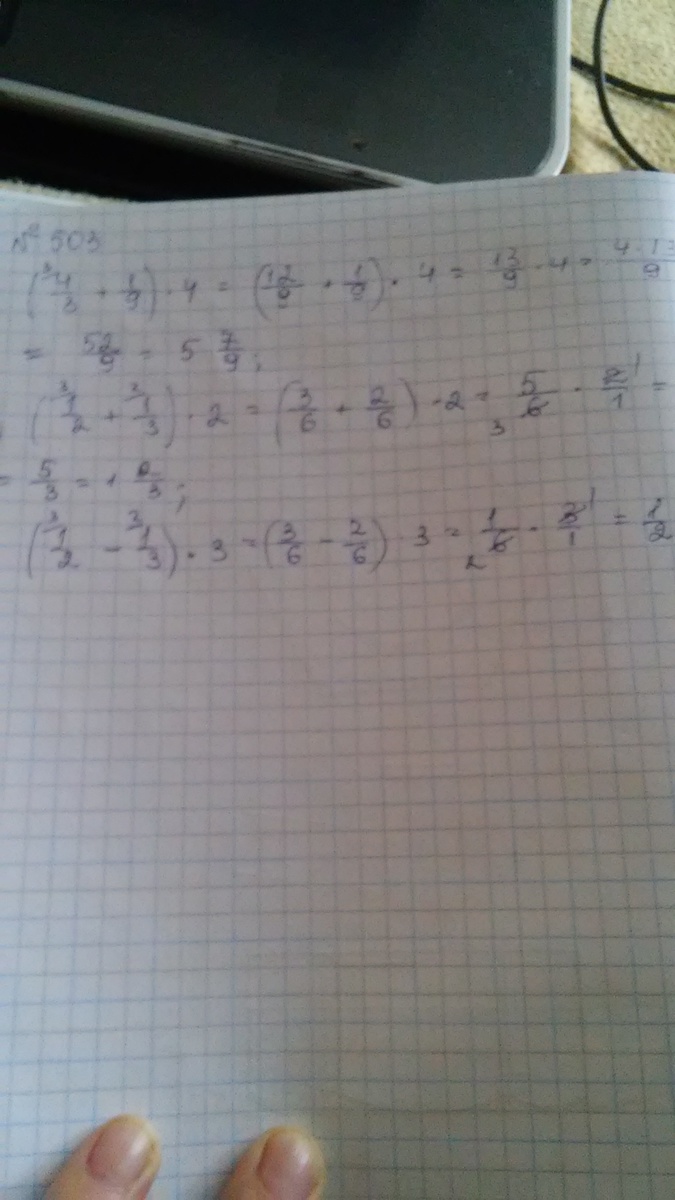 № 503
(³4/3 + 1/9) · 4 = (12/9 + 1/9) · 4 = 13/9 · 4 = 4 · 13/9
= 52/9 = 5 7/9;
(³1/2 + ²1/3) · 2 = (3/6 + 2/6) · 2 = 5/6 ₃ · 2/1 ¹ =
= 5/3 = 1 2/3;
(³1/2 - ²1/3) · 3 = (3/6 - 2/6) 3 = 1/6 ₂ · 3/1 ¹ = 1/2